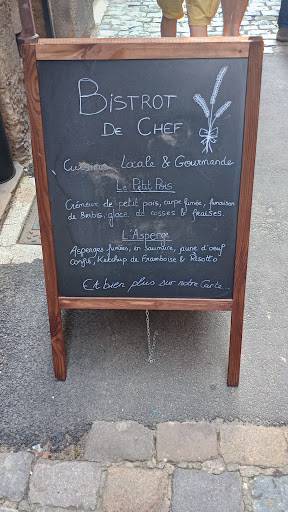 BISTROT
DE CHEF
Cuisine Locale & Gourmande
Le Petit Pois
Crémeux de petit pois, carpe fumée, 
de Brebis, glace de cosses & fraises.
L'Asperge
Asperges fumées, en Saumure, jaune d'oeuf
confit, Ketchup de Framboise & Risotto
Et bien plus sur notre Carte...